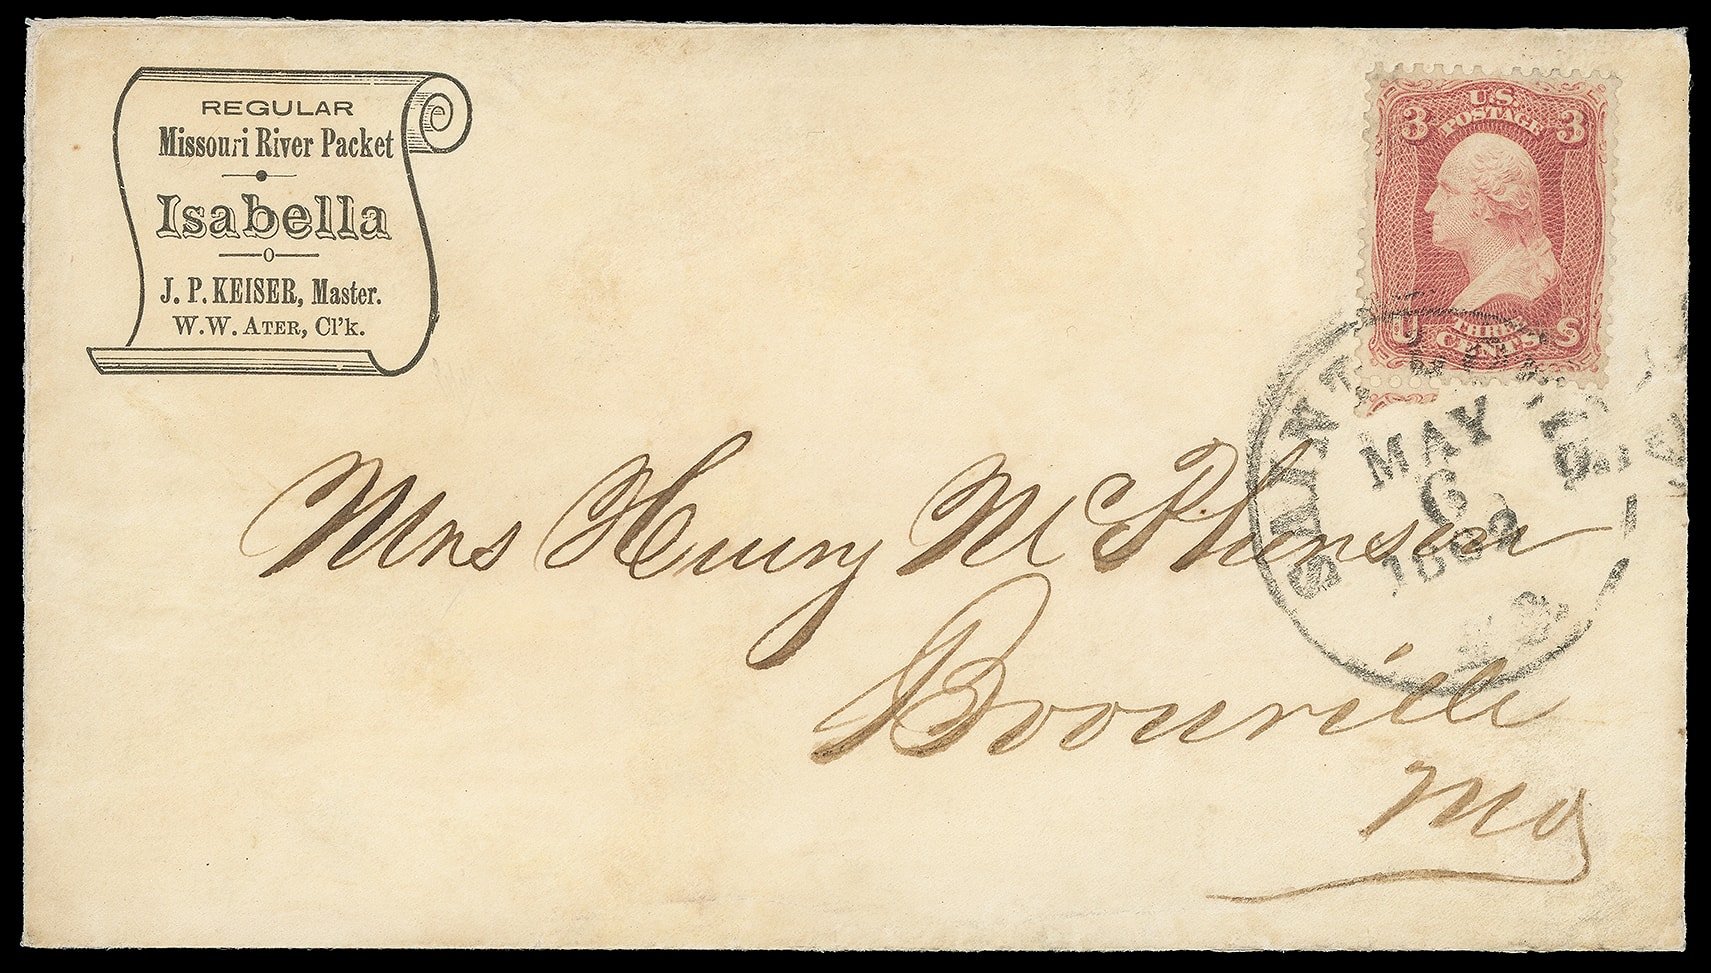 REGULAR
Missouri River Packet
Isabella
J. P. KEISER, Master.
W. W. ATER, Cl'k.
U.S.
POSTAGE
3 3
U THREE S
CENTS
SAINT
MAY
6
Mrs Henry McPherson
Boonville
Mo